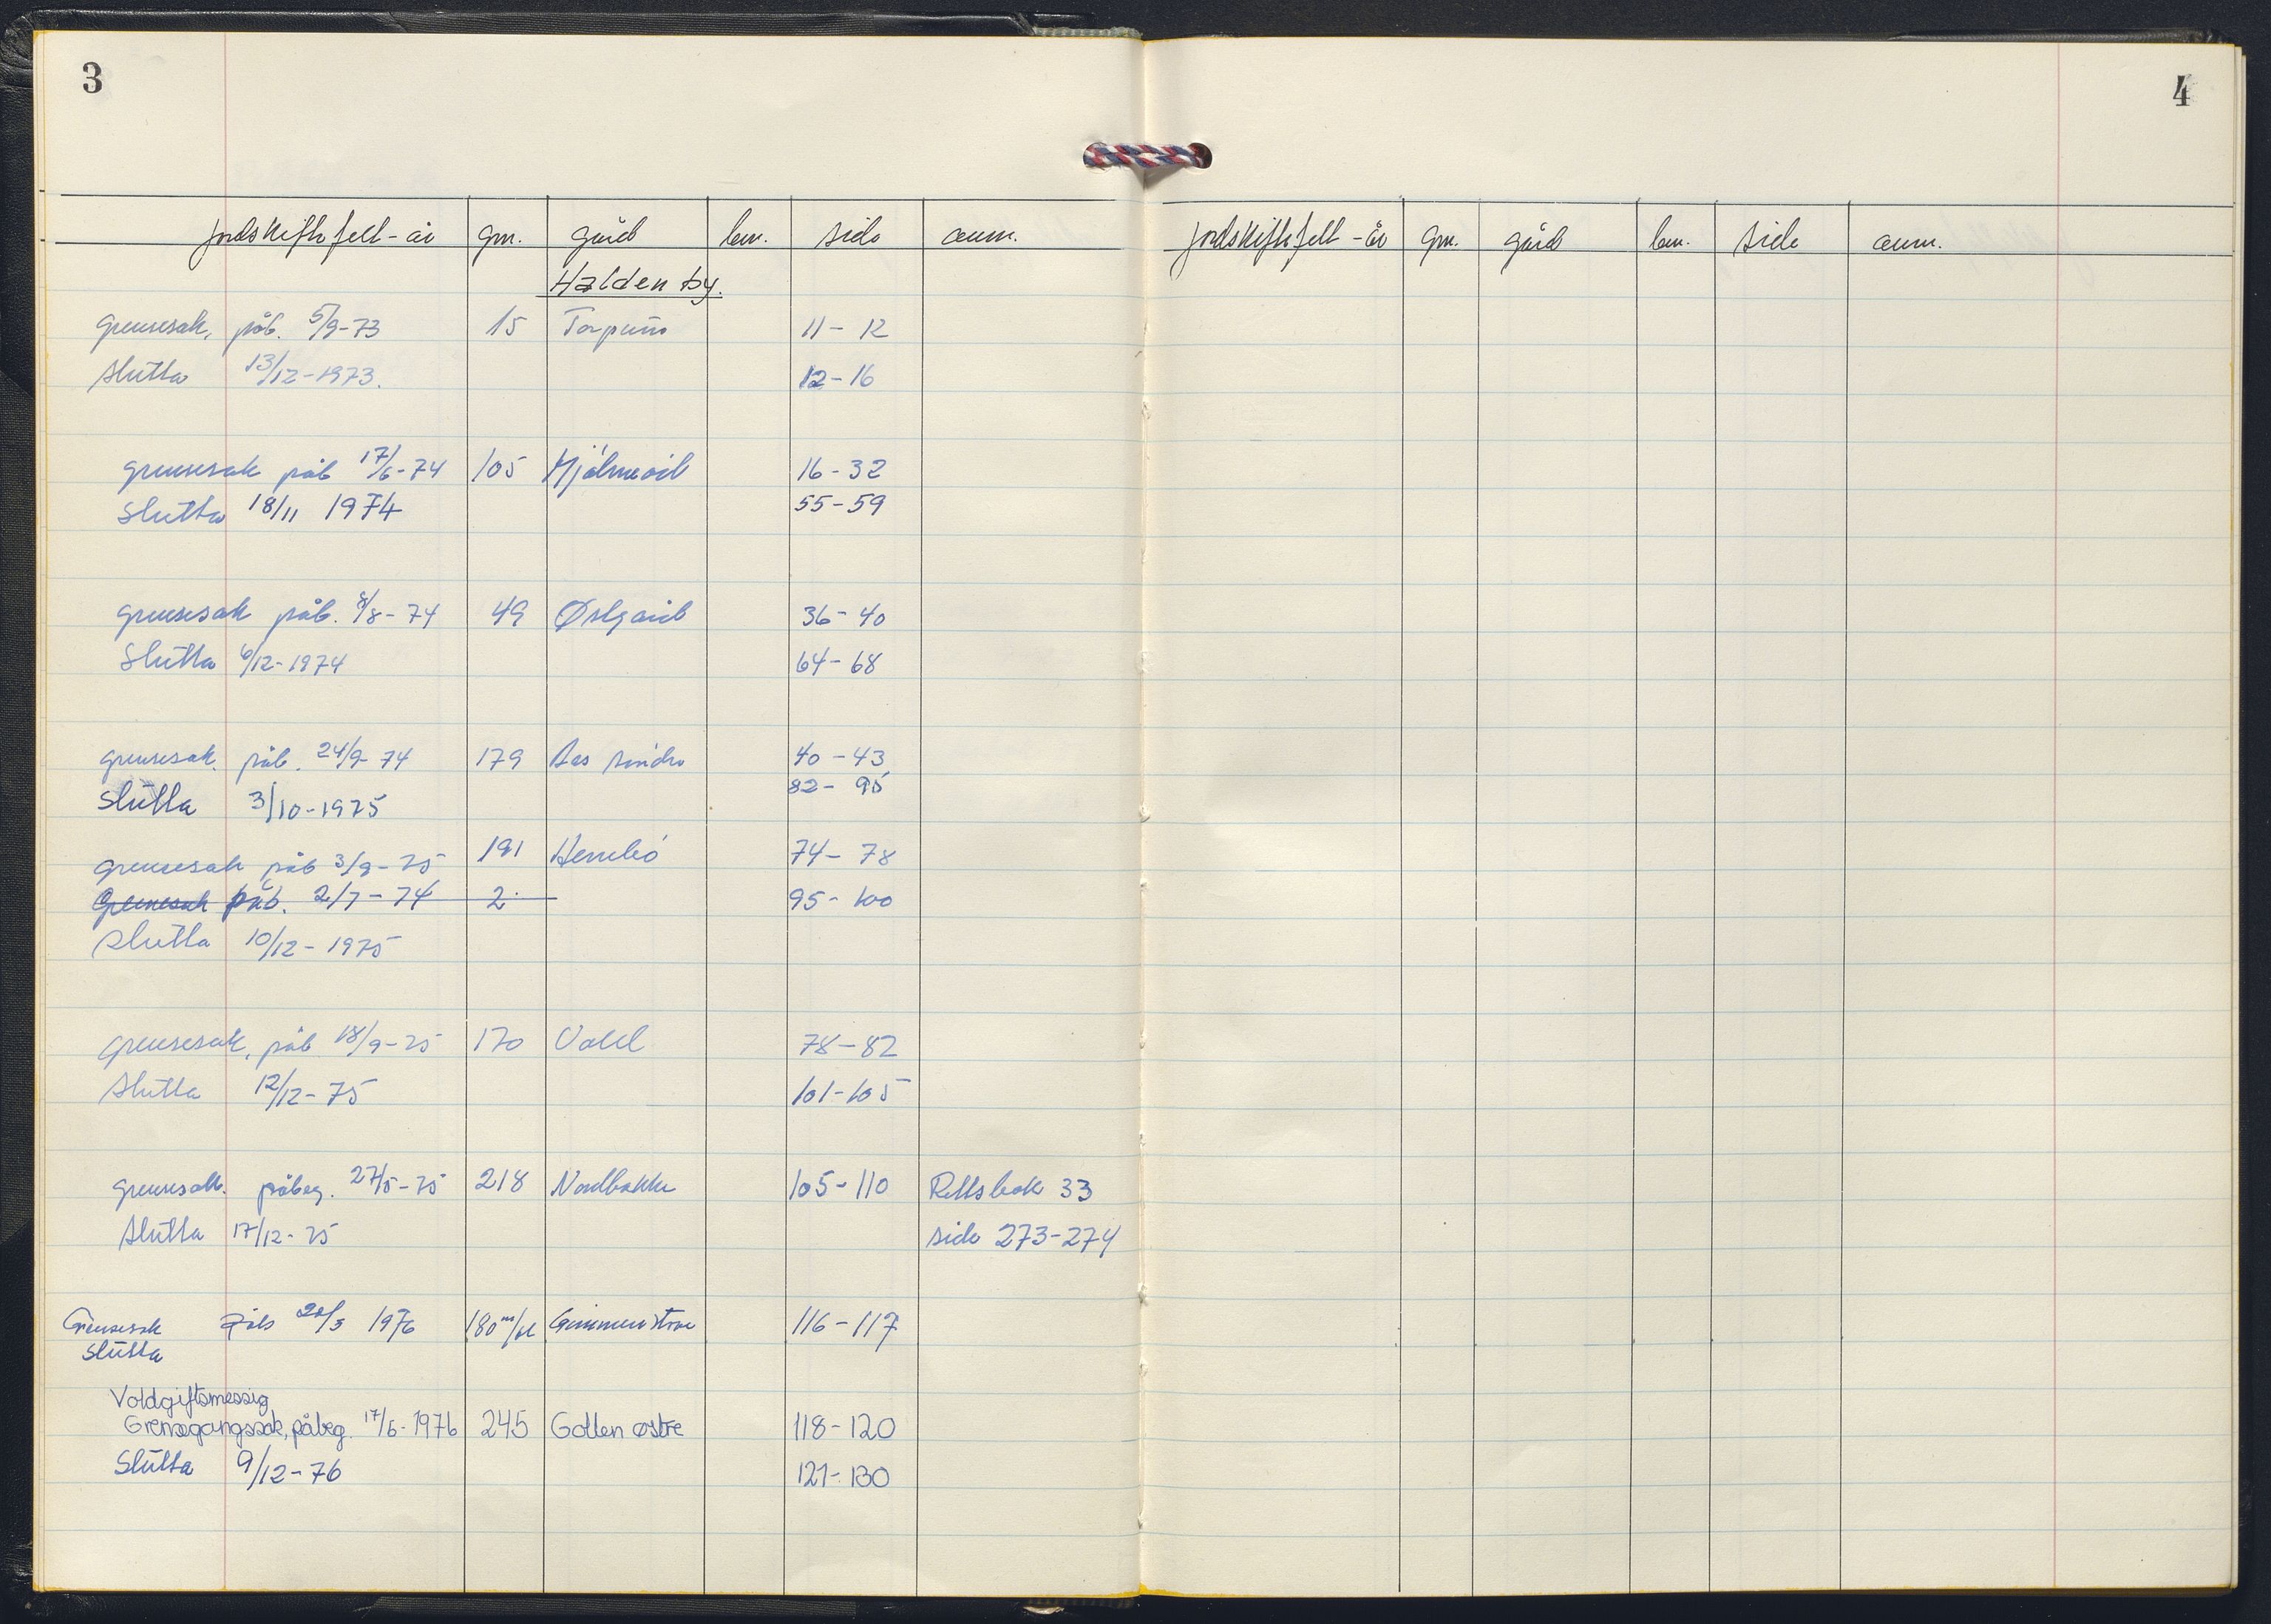 3
jordskiftefelt - år gnr. gård bnr. side anm.
Halden by.
Grensesak, påb. 5/9-73 15 Torpum 11 - 12
Slutta 13/12-1973. 12-16
grensesak påb 17/6-74 105 Hjelmård 16-32
Slutta 18/11 1974 55-59
grensesak påb. 8/8-74 49 Østgård 36-40
Slutta 6/12-1974 64-68
grensesak. påb. 24/9-74 179 Aas søndre 40-43
Slutta 3/10-1975 82-95
grensesak påb 3/9-75 191 74-78
Grensesak påb. 2/7-74 2. 95-100
Slutta 10/12-1975
grensesak, påb 18/9-75 170 Vold 78-82
Slutta 12/12-75 101-105
grensesak. påbeg. 27/5-75 218 Nordbakke 105-110 Rettsbok 33
Slutta 17/12-75 side 273-274
Grensesak påb 1976 180 m/fl 116-117
Slutta
Voldgiftsmessig
Grensegangssak, påbeg. 17/6-1976 245 Gotten østre 118-120
Slutta 9/12-76 121-130
4
jordskiftefelt - år gnr. gård bnr. side anm.